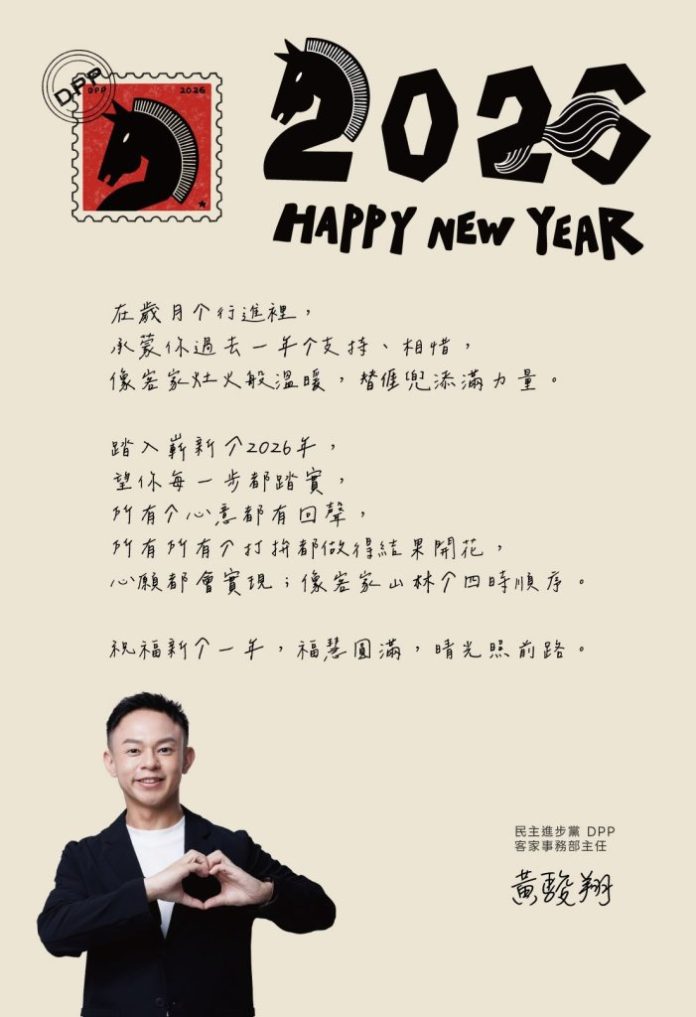 DPP
DPP 2026
2026
HAPPY NEW YEAR
在歲月个行進裡，
承蒙你過去一年个支持、相惜，
像客家灶火般溫暖，替𠊎兜添滿力量。
踏入嶄新个2026年，
望你每一步都踏實，
所有个心意都有回聲，
所有所有个打拚都做得結果開花，
心願都會實現；像客家山林个四時順序。
祝福新个一年，福慧圓滿，晴光照前路。
民主進步黨 DPP
客家事務部主任
黃駿翔